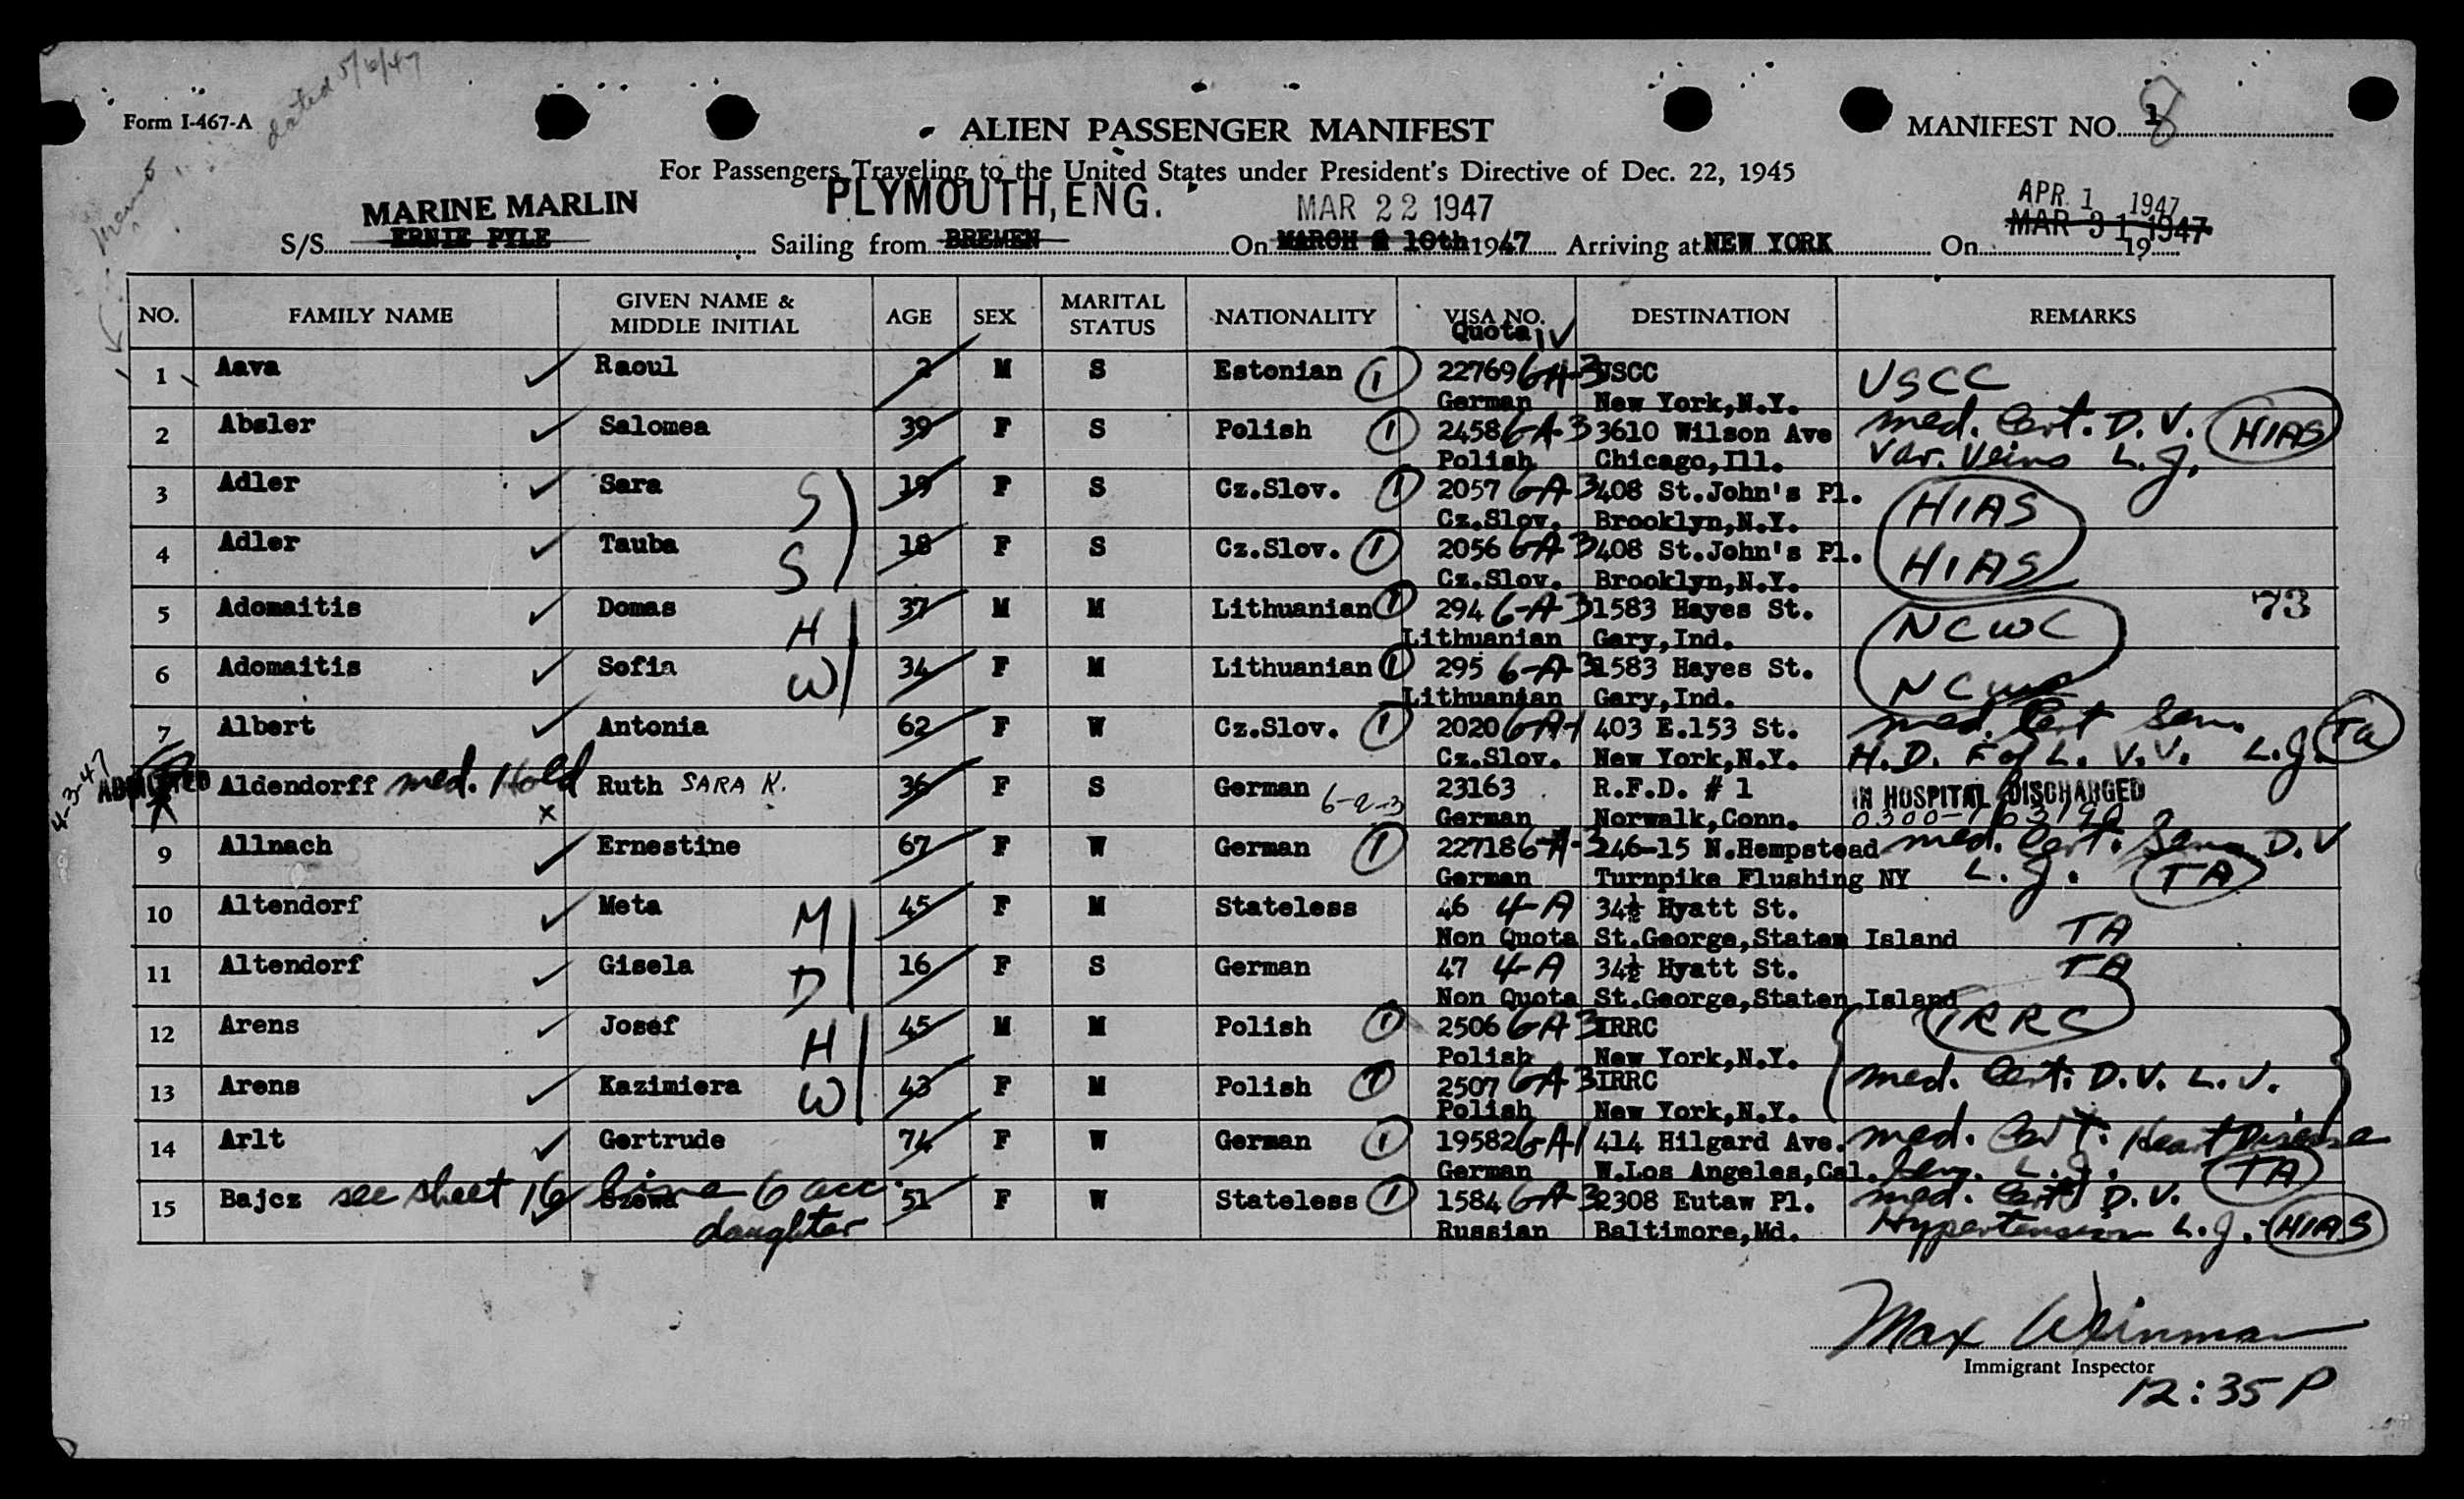 dated 5/6/47
Form I-467-A
ALIEN PASSENGER MANIFEST
MANIFEST NO. 1 8
For Passengers Traveling to the United States under President's Directive of Dec. 22, 1945
MARINE MARLIN PLYMOUTH, ENG. MAR 22 1947 APR. 1 1947
MAR 31 1947
S/S ERNIE PYLE Sailing from BREMEN On MARCH 10th 1947 Arriving at NEW YORK On 19
NO. FAMILY NAME GIVEN NAME & MIDDLE INITIAL AGE SEX MARITAL STATUS NATIONALITY VISA NO. Quota IV DESTINATION REMARKS
1 Aava Raoul 2 M S Estonian 1 22769 6A-3 USCC USCC
German New York,N.Y.
2 Absler Salomea 39 F S Polish 1 2458 6A-3 3610 Wilson Ave med. Cert. D.V. HIAS
Polish Chicago,Ill. Var. Veins L.J.
3 Adler Sara S 19 F S Cz.Slov. 1 2057 6A-3 408 St.John's Pl. HIAS
Cz.Slov. Brooklyn,N.Y.
4 Adler Tauba S 18 F S Cz.Slov. 1 2056 6A-3 408 St.John's Pl. HIAS
Cz.Slov. Brooklyn,N.Y.
5 Adomaitis Domas H 37 M M Lithuanian 1 294 6-A-3 1583 Hayes St. NCWC 73
Lithuanian Gary,Ind.
6 Adomaitis Sofia W 34 F M Lithuanian 1 295 6-A-3 1583 Hayes St. NCWC
Lithuanian Gary,Ind.
7 Albert Antonia 62 F W Cz.Slov. 1 2020 6A-1 403 E.153 St. med. Cert Sen. TA
Cz.Slov. New York,N.Y. H.D. F of L. V.V. L.J.
4-3-47 ADMITTED Aldendorff med. Hold x Ruth SARA K. 36 F S German 6-a-3 23163 R.F.D. # 1 IN HOSPITAL DISCHARGED
German Norwalk,Conn. 0300-
9 Allnach Ernestine 67 F W German 1 22718 6-A-3 246-15 N.Hempstead med. Cert. Sen. D.V
German Turnpike Flushing NY L.J. TA
10 Altendorf Meta M 45 F M Stateless 46 4-A 34½ Hyatt St.
Non Quota St.George,Staten Island TA
11 Altendorf Gisela D 16 F S German 47 4-A 34½ Hyatt St. TA
Non Quota St.George,Staten Island
12 Arens Josef H 45 M M Polish 1 2506 6A-3 IRRC IRRC
Polish New York,N.Y.
13 Arens Kazimiera W 43 F M Polish 1 2507 6A-3 IRRC med. Cert. D.V. L.J.
Polish New York,N.Y.
14 Arlt Gertrude 74 F W German 1 19582 6A-1 414 Hilgard Ave. med. Cert. Heart Disease
German W.Los Angeles,Cal. Sen. L.J. TA
15 Bajcz see sheet 16 line 6 acc. Szewa 51 F W Stateless 1 1584 6A-3 2308 Eutaw Pl. med. Cert. D.V.
daughter Russian Baltimore,Md. Hypertension L.J. HIAS
Max Weinman
Immigrant Inspector
12:35 P